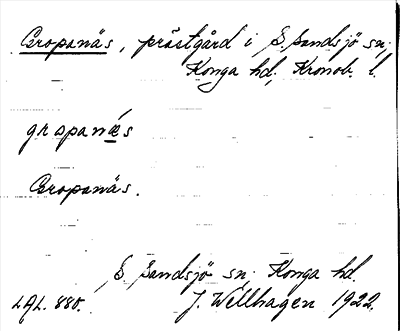 Gropanäs, prästgård i S. Sandsjö sn,
Konga hd, Kronob. l.
gropanǽs
Gropanäs.
S Sandsjö sn. Konga hd.
LAL. 880. J. Wellhagen 1922.